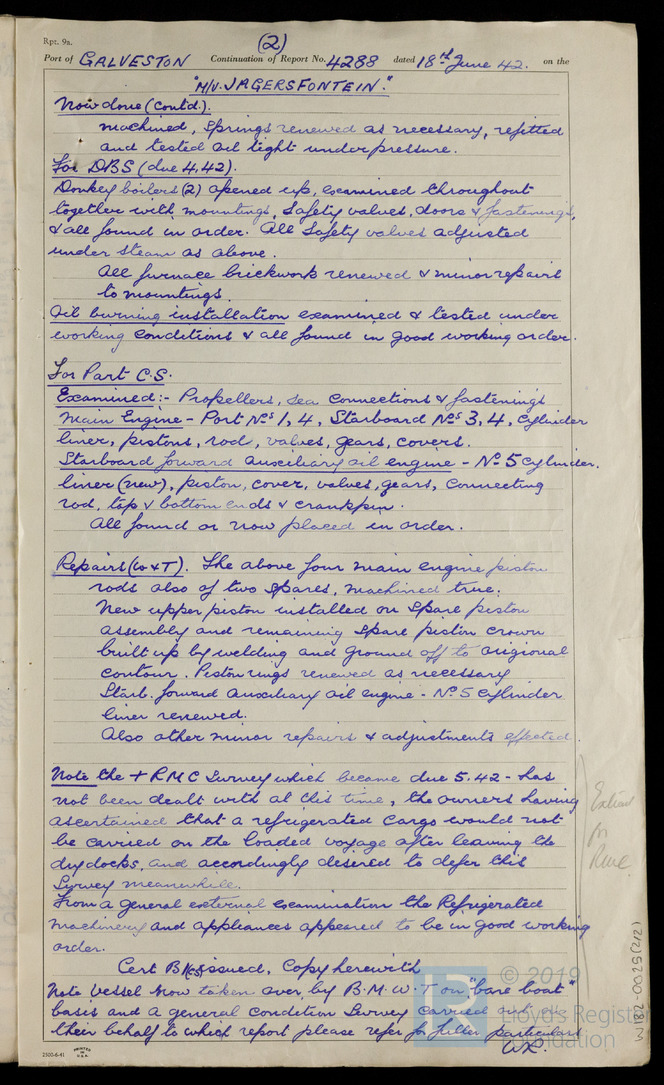 Rpt. 9a.
(2)
Port of GALVESTON Continuation of Report No. 4288 dated 18th June 42. on the
"M/V. JAGERSFONTEIN."
Now done (contd.).
machined, springs renewed as necessary, refitted
and tested oil tight under pressure.
For DBS (due 4,42).
Donkey boilers (2) opened up, examined throughout
together with mountings, safety valves, doors & fastenings,
& all found in order. All safety valves adjusted
under steam as above.
All furnace brickwork renewed & minor repairs
to mountings.
Oil burning installation examined & tested under
working conditions & all found in good working order.
For Part C.S.
Examined:- Propellers, sea connections & fastenings
Main Engine - Port Nos 1, 4, Starboard Nos 3, 4, cylinder
liner, pistons, rod, valves, gears, covers.
Starboard forward auxiliary oil engine - No 5 cylinder.
liner (new), piston, cover, valves, gears, connecting
rod, top & bottom ends & crankpin.
All found or now placed in order.
Repairs (W & T). The above four main engine piston
rods also of two spares, machined true.
New upper piston installed on spare piston
assembly and remaining spare piston crown
built up by welding and ground off to origional
contour. Piston rings renewed as necessary
Starb. forward auxiliary oil engine - No 5 cylinder
liner renewed.
Also other minor repairs & adjustments effected.
Note the + RMC Survey which became due 5.42 - has
not been dealt with at this time, the owners having
ascertained that a refrigerated cargo would not
be carried on the loaded voyage after leaving the
drydocks, and accordingly desired to defer this
Survey meanwhile.
From a general external examination the Refrigerated
machinery and appliances appeared to be in good working
order.
Extract
for
RMC
Cert B issued, Copy herewith
Note Vessel now taken over by B.M.W.T on "bare boat"
basis and a general condition Survey carried out on
their behalf to which report please refer for fuller particulars
WR.
2500-6-41
PRINTED IN U.S.A.
© 2019
Lloyd's Register
Foundation
3182-0025 (2/2)